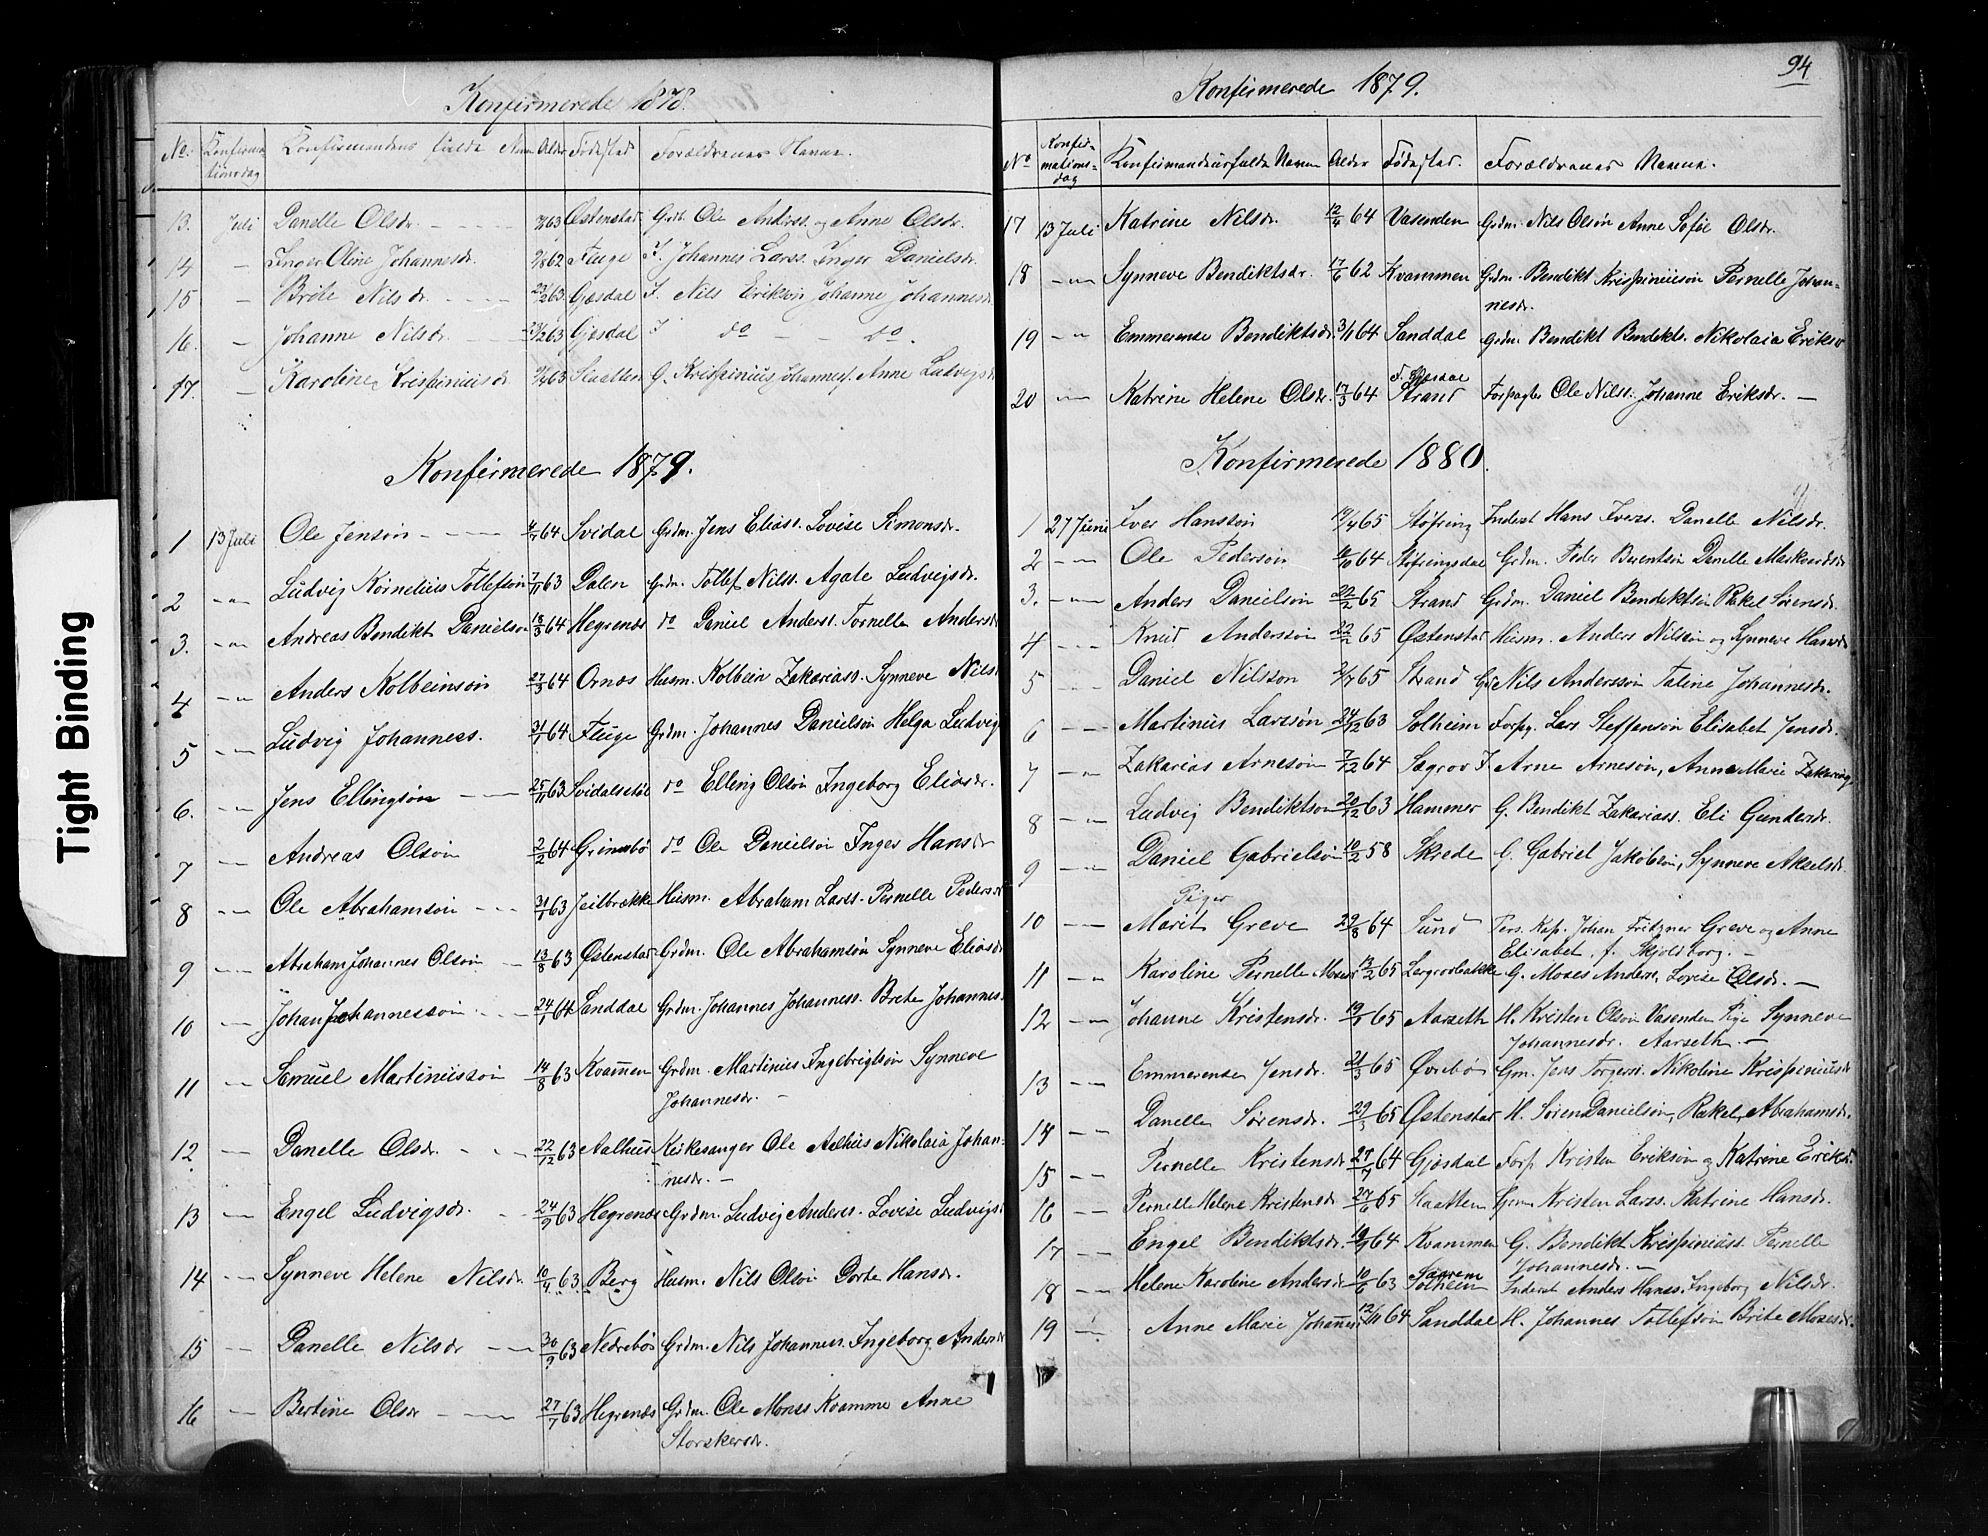 Tight Binding
Konfirmerede 1878.
No. Konfirmationsdag Konfirmandens fulde Navn Alder Fødested Forældrenes Navne.
13. Juli Danelle Olsdr. 63 Østenstad Grdb. Ole Anderss. og Anne Olsdr.
14 — Inger Oline Johannesdr. 62 Fluge I. Johannes Larss. Inger Danielsdr.
15 — Brite Nilsdr. 63 Gjesdal I. Nils Erikson Johanne Johannesdr.
16. — Johanne Nilsdr. 63 Gjesdal I do — do.
17. — Karoline Krispiniusdr. 63 Slaatten G. Krispinius Johanness. Anne Ludvigsdr
Konfirmerede 1879.
1 13 Juli Ole Jenson 64 Svidal Grdm. Jens Eliass. Lovise Simonsdr.
2 -"- Ludvig Kornelius Tollefson 7/11 63 Dalen Grdm. Tollef Nilss. Agate Ludvigsdr.
3. -"- Andreas Bendikt Danielson 18/3 64 Hegrenæs do Daniel Anderss. Pernelle Andersdr
4 -"- Anders Kolbeinson 27/3 64 Ornæs Husm. Kolbein Zakariass. Synneve Nils
5 -"- Ludvig Johanness. 31/1 64 Fluge Grdm. Johannes Danielson Helga Ludvigs
6. -"- Jens Ellingson 25/11 63 Svidalseide do Elling Olson Ingeborg Eliasdr.
7 — Andreas Olson 2/2 64 Grimsbø do Ole Danielson Inger Hansdr
8 -"- Ole Abrahamson 31/1 63 Jeilbrække Husm. Abraham Larss. Pernelle Pedersdr
9 -"- Abraham Johannes Olson 13/8 63 Østenstad Grdm. Ole Abrahamson Synneve Eliasdr
10 -"- Johan Johannesson 24/1 64 Sanddal Grdm. Johannes Johanness. Brite Johannes.
11 -"- Samuel Martinusson 14/8 63 Kvammen Grdm. Martinus Ingebrigtson Synneve
Johannesdr. —
12. — Danelle Olsdr. 22/12 63 Aalhus Kirkesanger Ole Aalhus Nikolaia Johan-
nesdr. —
13 -"- Engel Ludvigsdr. 24/9 63 Hegrenæs Grdm. Ludvig Anderss. Lovise Ludvigs
14 -"- Synneve Helene Nilsdr. 10/4 63 Berg Husm. Nils Olson Dorte Hansdr.
15 -"- Danelle Nilsdr 30/9 63 Nedrebø Grdm. Nils Johanness. Ingeborg Andersdr
16 — Bertine Olsdr 27/7 63 Hegrenæs Grdm. Ole Monss Kvamme Anne
Storakersdr.
94
Konfirmerede 1879.
No Konfirmations-dag Konfirmandens fulde Navn Alder Fødested. Forældrenes Navne.
17 13 Juli Katrine Nilsdr. 12/4 64 Vasenden Grdm. Nils Olson Anne Sofie Olsdr.
18 -"- Synneve Bendiktsdr. 17/6 62 Kvammen Grdm. Bendikt Krispiniuson Pernelle Johan-
nesdr.
19 -"- Emmerense Bendiktsdr. 64 Sanddal Grdm. Bendikt Bendikts. Nikolaia Eriksdr
20 -"- Katrine Helene Olsdr. 17/3 64 Strand Forpagter Ole Nilss. Johanne Eriksdr. —
Konfirmerede 1880.
1 27 Juni Iver Hansson 65 Støfring Inderst Hans Iverss. Danelle Nilsdr.
2 -"- Ole Pederson 64 Støfringsdal Grdm. Peder Berentson Danelle Markusdr
3. -"- Anders Danielson 22/2 65 Strand Grdm. Daniel Bendiktson Rakel Sørensdr.
4 -"- Knud Andersson 22/2 65 Østenstad Husm. Anders Nilson og Synneve Hansdr
5 -"- Daniel Nilsson 2/7 65 Strand G. Nils Andersson Taline Johannesdr.
6 -"- Martinus Larsson 24/12 63 Solheim Forpg. Lars Steffenson Elisabet Jensdr.
7 -"- Zakarias Arneson 7/12 64 Sægrov I. Arne Arneson, Anne Marie Zakariasdr
8 -"- Ludvig Bendiktson 20/12 63 Hammer G. Bendikt Zakariass. Eli Gundersdr.
9 -"- Daniel Gabrielson 10/2 58 Skrede G. Gabriel Jakobson, Synneve Akselsdr.
Piger
10 -"- Marit Greve 29/8 64 Sund Pers. Kap. Johan Fritzner Greve og Anne
Elisabet f. Skjoldborg. —
11 -"- Karoline Pernelle Mosesdr 13/2 65 Sægrovbakke G. Moses Anders. Lovise Olsdr. —
12 -"- Johanne Kristensdr. 65 Aarseth H. Kristen Olson Vasenden Pige Synneve
Johannesdr. Aarseth. —
13 -"- Emmerense Jensdr. 21/3 65 Øvrebø Gm. Jens Torgerss. Nikoline Krispiniusdr
14 -"- Danelle Sørensdr. 65 Østenstad H. Søren Danielson, Rakel Abrahamsdr.
15 -"- Pernelle Kristensdr 27/7 64 Gjesdal Forp Kristen Erikson og Katrine Eriksdr.
16 -"- Pernelle Helene Kristensdr 27/6 65 Slaatten Kristen Larss. Katrine Hansdr.
17 -"- Engel Bendiktsdr. 64 Kvammen G. Bendikt Krispiniuss. Pernelle
Johannesdr. —
18 -"- Helene Karoline Andersdr 10/6 63 Solheim Inderst Anders Hanss. Ingeborg Nilsdr.
19 -"- Anne Marie Johannesdr 12/11 64 Sanddal H. Johannes Tollefson Brite Mosesdr.